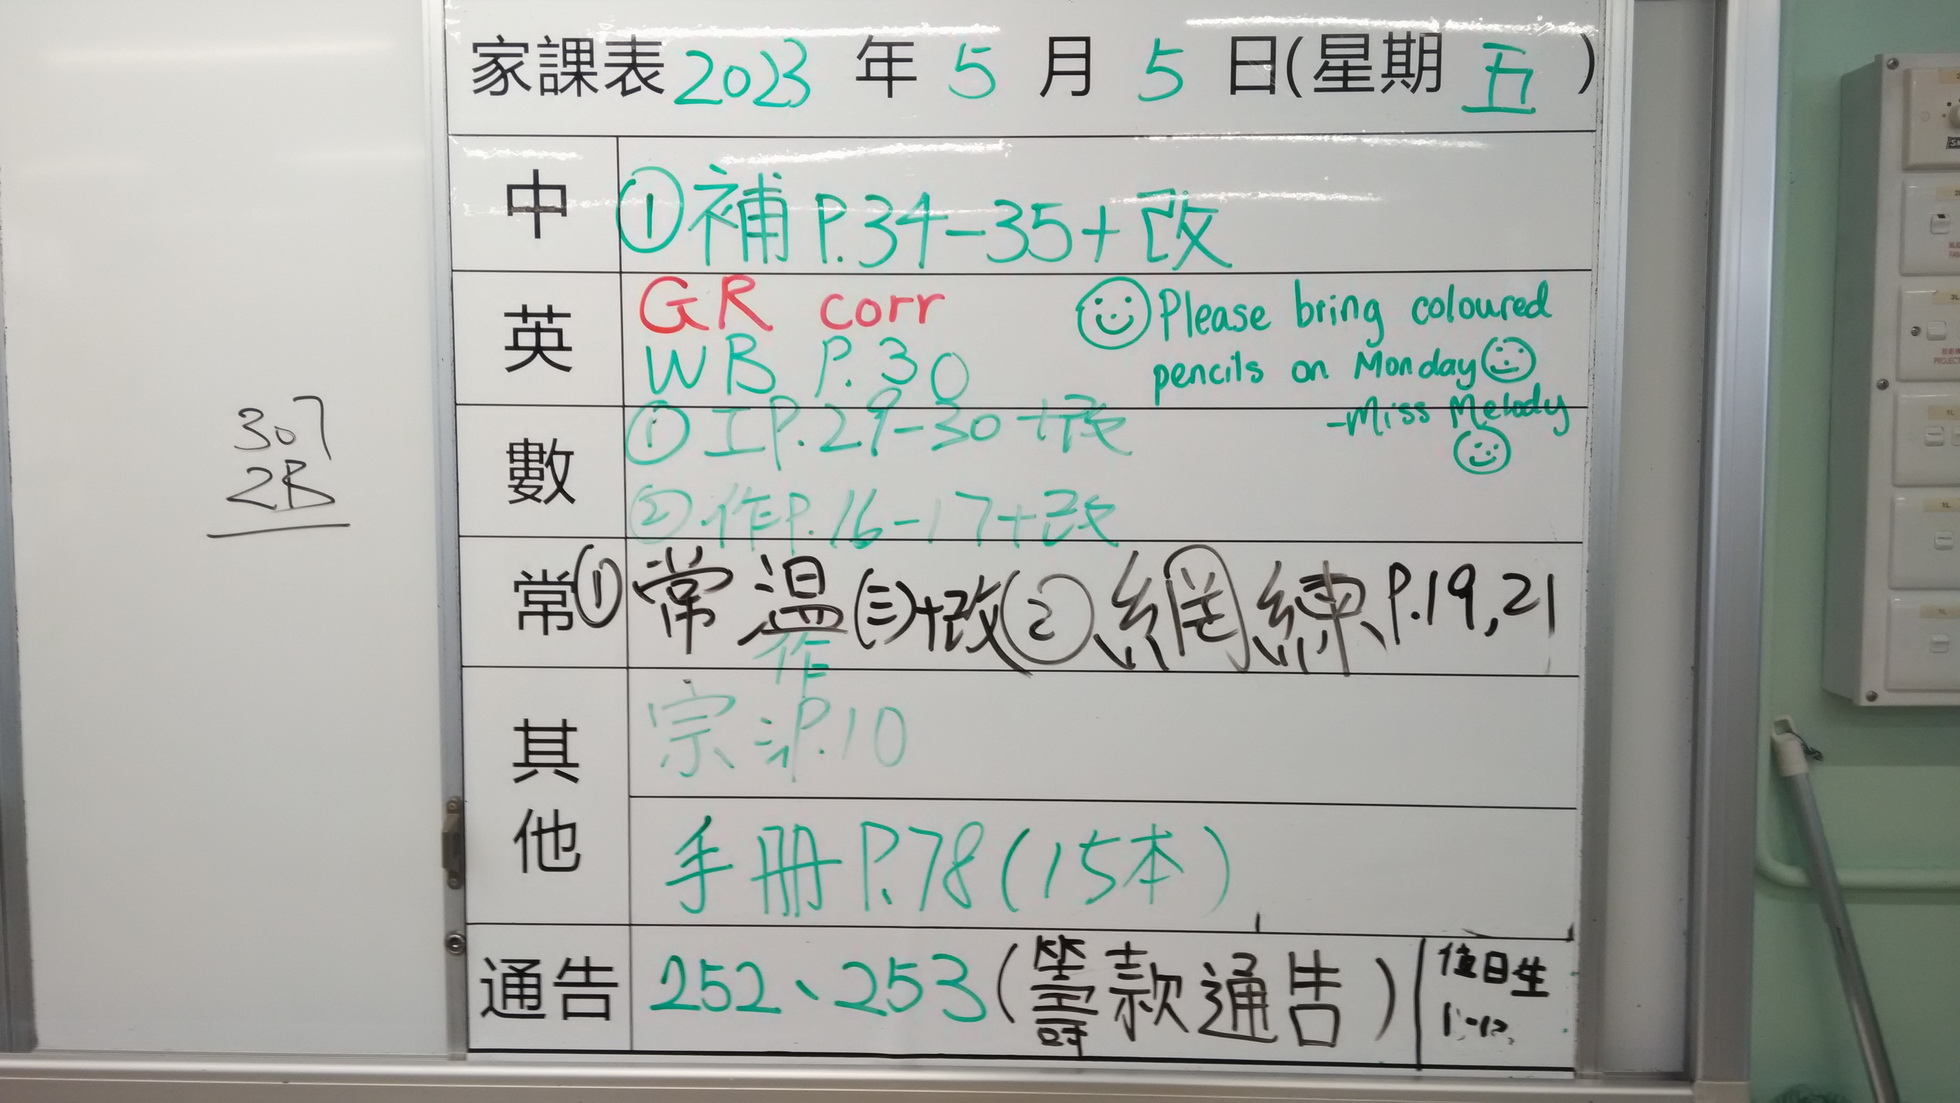 家課表 2023 年 5 月 5 日(星期 五 )
中 ①補 P.34-35+改
英 GR corr
WB P.30
Please bring coloured
pencils on Monday
-Miss Melody
數 ①工P.29-30+改
②作P.16-17+改
常 ①常温(三)+改②網練P.19,21
作
其他 宗 P.10
手冊P.78(15本)
通告 252、253(籌款通告)
值日生
307
2B